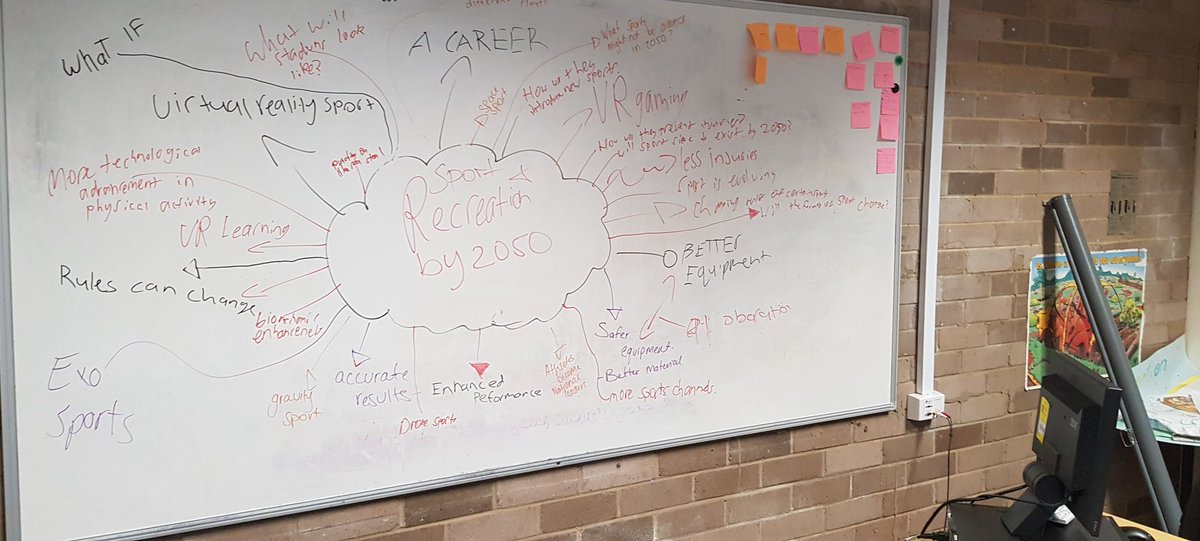 WHAT IF
What will
stadiums look
like?
A CAREER
What sports
might not be around
in 2050?
Virtual reality sport
space
sport
How will they
introduce new sports
VR gaming
More technological
advancement in
physical activity
How will they prevent injuries?
will sport still exist by 2050?
less injuries
is evolving
Sport &
Recreation
by 2050
VR Learning
Changing
Will the forms of sport change?
Rules can change
BETTER
Equipment
enhancements
Exo
Sports
gravity
sport
accurate
results
Drone sports
Enhanced
Peformance
Athletes
become
national
leaders
Safer
equipment.
-Better material
more sports channels.